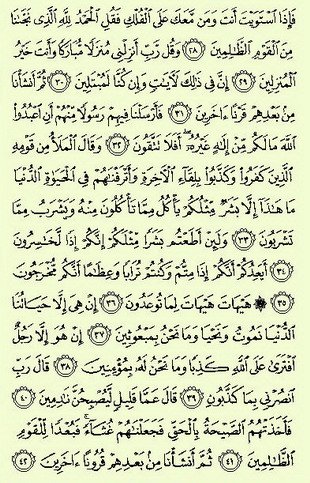 فَإِذَا ٱسْتَوَيْتَ أَنتَ وَمَن مَّعَكَ عَلَى ٱلْفُلْكِ فَقُلِ ٱلْحَمْدُ لِلَّهِ ٱلَّذِى نَجَّىٰنَا
مِنَ ٱلْقَوْمِ ٱلظَّـٰلِمِينَ ٢٨ وَقُل رَّبِّ أَنزِلْنِى مُنزَلًا مُّبَارَكًا وَأَنتَ خَيْرُ
ٱلْمُنزِلِينَ ٢٩ إِنَّ فِى ذَٰلِكَ لَـَٔايَـٰتٍ وَإِن كُنَّا لَمُبْتَلِينَ ٣٠ ثُمَّ أَنشَأْنَا
مِنۢ بَعْدِهِمْ قَرْنًا ءَاخَرِينَ ٣١ فَأَرْسَلْنَا فِيهِمْ رَسُولًا مِّنْهُمْ أَنِ ٱعْبُدُوا۟
ٱللَّهَ مَا لَكُم مِّنْ إِلَـٰهٍ غَيْرُهُۥٓ أَفَلَا تَتَّقُونَ ٣٢ وَقَالَ ٱلْمَلَأُ مِن قَوْمِهِ
ٱلَّذِينَ كَفَرُوا۟ وَكَذَّبُوا۟ بِلِقَآءِ ٱلْـَٔاخِرَةِ وَأَتْرَفْنَـٰهُمْ فِى ٱلْحَيَوٰةِ ٱلدُّنْيَا
مَا هَـٰذَآ إِلَّا بَشَرٌ مِّثْلُكُمْ يَأْكُلُ مِمَّا تَأْكُلُونَ مِنْهُ وَيَشْرَبُ مِمَّا
تَشْرَبُونَ ٣٣ وَلَئِنْ أَطَعْتُم بَشَرًا مِّثْلَكُمْ إِنَّكُمْ إِذًا لَّخَـٰسِرُونَ
٣٤ أَيَعِدُكُمْ أَنَّكُمْ إِذَا مِتُّمْ وَكُنتُمْ تُرَابًا وَعِظَـٰمًا أَنَّكُم مُّخْرَجُونَ
٣٥ ۞ هَيْهَاتَ هَيْهَاتَ لِمَا تُوعَدُونَ ٣٦ إِنْ هِىَ إِلَّا حَيَاتُنَا
ٱلدُّنْيَا نَمُوتُ وَنَحْيَا وَمَا نَحْنُ بِمَبْعُوثِينَ ٣٧ إِنْ هُوَ إِلَّا رَجُلٌ
ٱفْتَرَىٰ عَلَى ٱللَّهِ كَذِبًا وَمَا نَحْنُ لَهُۥ بِمُؤْمِنِينَ ٣٨ قَالَ رَبِّ
ٱنصُرْنِى بِمَا كَذَّبُونِ ٣٩ قَالَ عَمَّا قَلِيلٍ لَّيُصْبِحُنَّ نَـٰدِمِينَ ٤٠
فَأَخَذَتْهُمُ ٱلصَّيْحَةُ بِٱلْحَقِّ فَجَعَلْنَـٰهُمْ غُثَآءً ۚ فَبُعْدًا لِّلْقَوْمِ
ٱلظَّـٰلِمِينَ ٤١ ثُمَّ أَنشَأْنَا مِنۢ بَعْدِهِمْ قُرُونًا ءَاخَرِينَ ٤٢